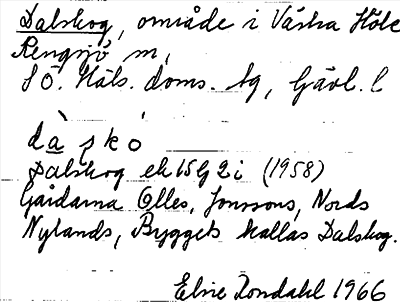 Dalskog, område i Västra Höle
Rengsjö sn,
SÖ. Häls. doms. tg, Gävl. l
dàskó
Dalskog ek 15G 2i (1958)
Gårdarna Olles, Jonssons, Nords
Nylands, Byggets kallas Dalskog.
Elsie Zondahl 1966